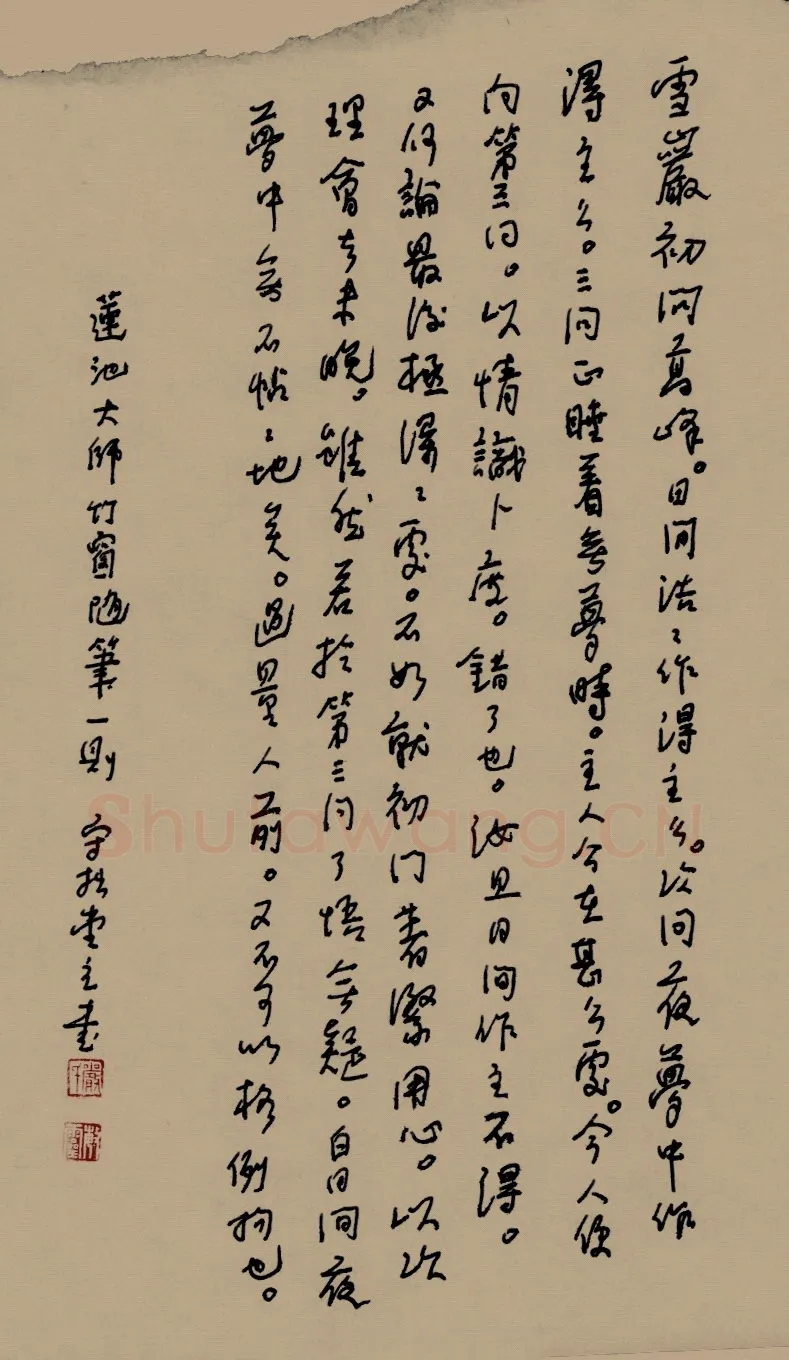 雪巖初問高峰。日間浩〻作得主么。次问夜夢中作
得主么。三问正睡着無夢時。主人公在甚么處。今人便
向第三问。以情識卜度。錯了也。汝且日间作主不得。
又何論最後極深〻處。不如就初门着緊用心。以次
理會去未晚。雖然若於第三问了悟無疑。白日间夜
夢中無不帖〻地矣。過量人前。又不可以格例拘也。
蓮池大師竹窗随筆一則 守拙堂主書
Shufawang.CN